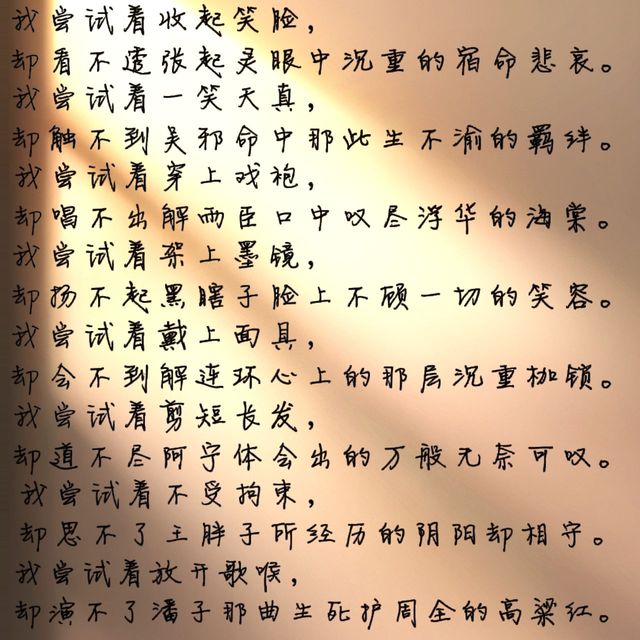 我尝试着收起笑脸，
却看不透张起灵眼中沉重的宿命悲哀。
我尝试着一笑天真，
却触不到吴邪命中那此生不渝的羁绊。
我尝试着穿上戏袍，
却唱不出解雨臣口中叹尽浮华的海棠。
我尝试着架上墨镜，
却扬不起黑瞎子脸上不顾一切的笑容。
我尝试着戴上面具，
却会不到解连环心上的那层沉重枷锁。
我尝试着剪短长发，
却道不尽阿宁体会出的万般无奈可叹。
我尝试着不受拘束，
却思不了王胖子所经历的阴阳却相守。
我尝试着放开歌喉，
却演不了潘子那曲生死护周全的高粱红。